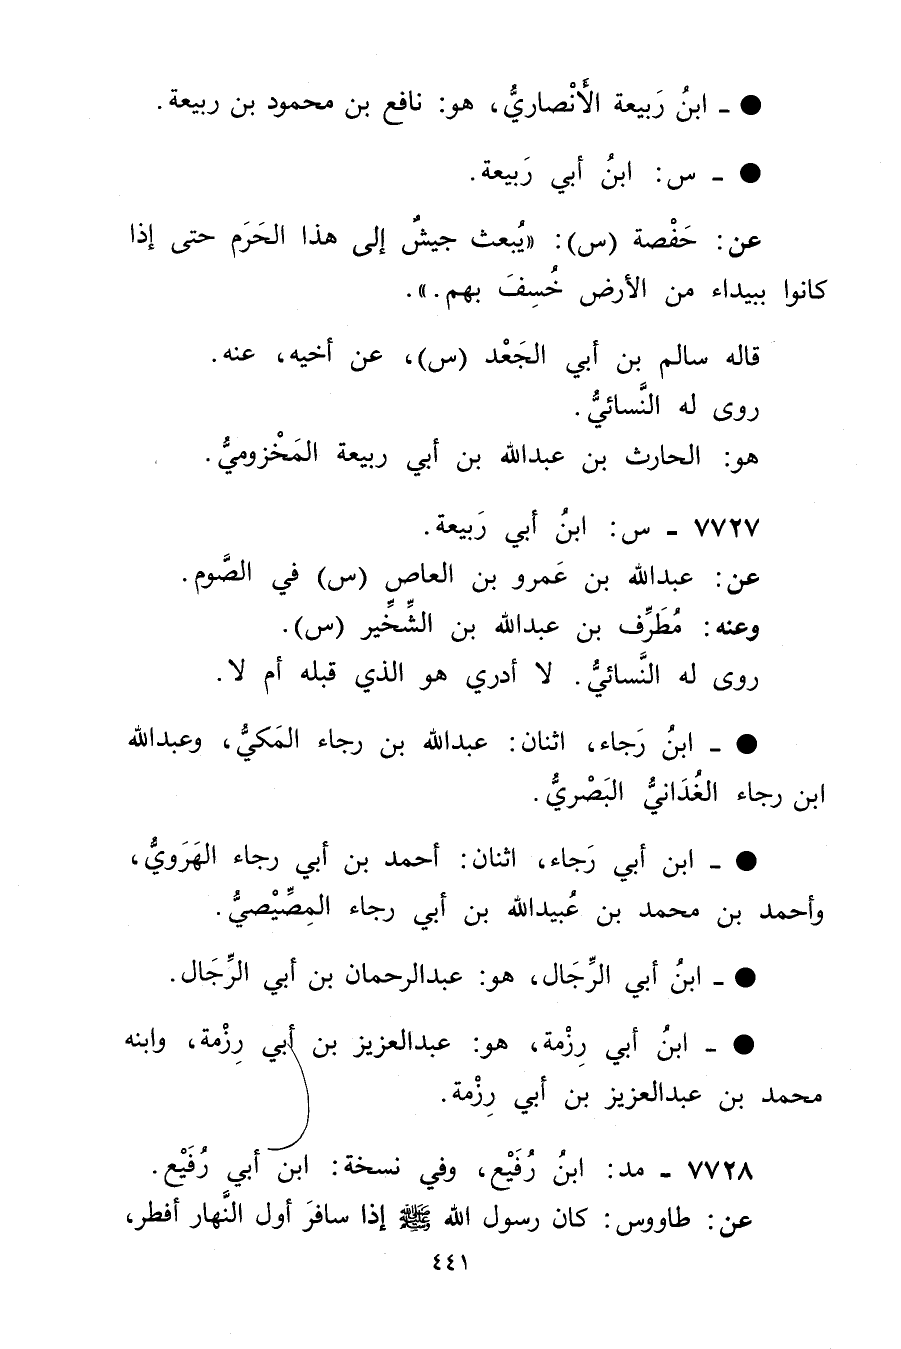 ● ـ ابنُ رَبيعة الأَنْصاريُّ، هو: نافع بن محمود بن ربيعة.
● ـ س: ابنُ أبي رَبيعة.
عن: حَفْصة (س): «يُبعث جيشٌ إلى هذا الحَرَم حتى إذا
كانوا ببيداء من الأرض خُسِفَ بهم.».
قاله سالم بن أبي الجَعْد (س)، عن أخيه، عنه.
روى له النَّسائيُّ.
هو: الحارث بن عبدالله بن أبي ربيعة المَخْزوميُّ.
٧٧٢٧ ـ س: ابنُ أبي رَبيعة.
عن: عبدالله بن عَمرو بن العاص (س) في الصَّوم.
وعنه: مُطَرِّف بن عبدالله بن الشِّخِّير (س).
روى له النَّسائيُّ. لا أدري هو الذي قبله أم لا.
● ـ ابنُ رَجاء، اثنان: عبدالله بن رجاء المَكيُّ، وعبدالله
ابن رجاء الغُدَانيُّ البَصْريُّ.
● ـ ابن أبي رَجاء، اثنان: أحمد بن أبي رجاء الهَرَويُّ،
وأحمد بن محمد بن عُبيدالله بن أبي رجاء المِصِّيْصيُّ.
● ـ ابنُ أبي الرِّجَال، هو: عبدالرحمان بن أبي الرِّجَال.
● ـ ابنُ أبي رِزْمة، هو: عبدالعزيز بن أبي رِزْمة، وابنه
محمد بن عبدالعزيز بن أبي رِزْمة.
٧٧٢٨ ـ مد: ابنُ رُفَيْع، وفي نسخة: ابن أبي رُفَيْع.
عن: طاووس: كان رسول الله ﷺ إذا سافرَ أول النَّهار أفطر،
٤٤١